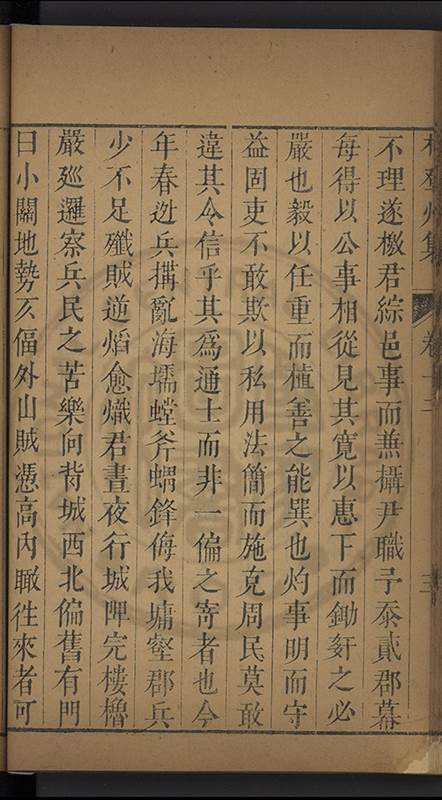 林登州集 卷十二 三
不理遂檄君綜邑事而兼攝尹職予忝貳郡幕
每得以公事相從見其寬以惠下而鋤姧之必
嚴也毅以任重而植善之能巽也灼事明而守
益固吏不敢欺以私用法簡而施克周民莫敢
違其令信乎其爲通士而非一偏之寄者也今
年春迯兵搆亂海壖螳斧蝟鋒侮我墉壑郡兵
少不足殱賊逆熖愈熾君晝夜行城睥完樓櫓
嚴廵邏察兵民之苦樂向背城西北偏舊有門
曰小關地勢亥偪外山賊憑高內瞰徃來者可